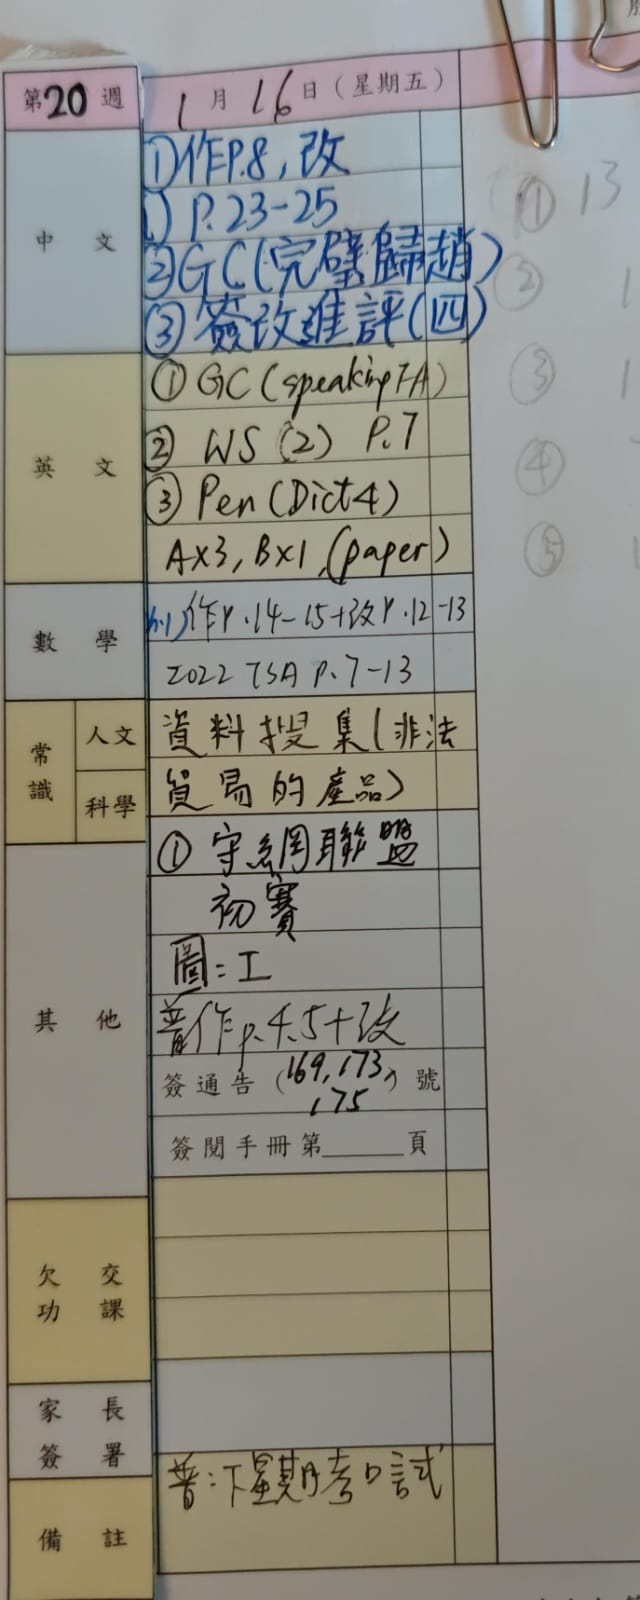 第20週 1月16日(星期五)
中文
①作P.8,改
1) P.23-25
②GC(完璧歸趙)
③簽改進評(四)
英文
①GC(speaking FA)
②WS(2) P.7
③Pen(Dict4)
A×3, B×1,(paper)
數學
作P.14-15+改P.12-13
2022 TSA P.7-13
常識
人文
科學
資料搜集(非法
貿易的產品)
其他
①守網聯盟
初賽
圖:工
普作p.4.5+改
簽通告(169,173,)號
175
簽閱手冊第______頁
欠交
功課
家長
簽署
備註
普:下星期考口試
① 13
②
③
④
⑤